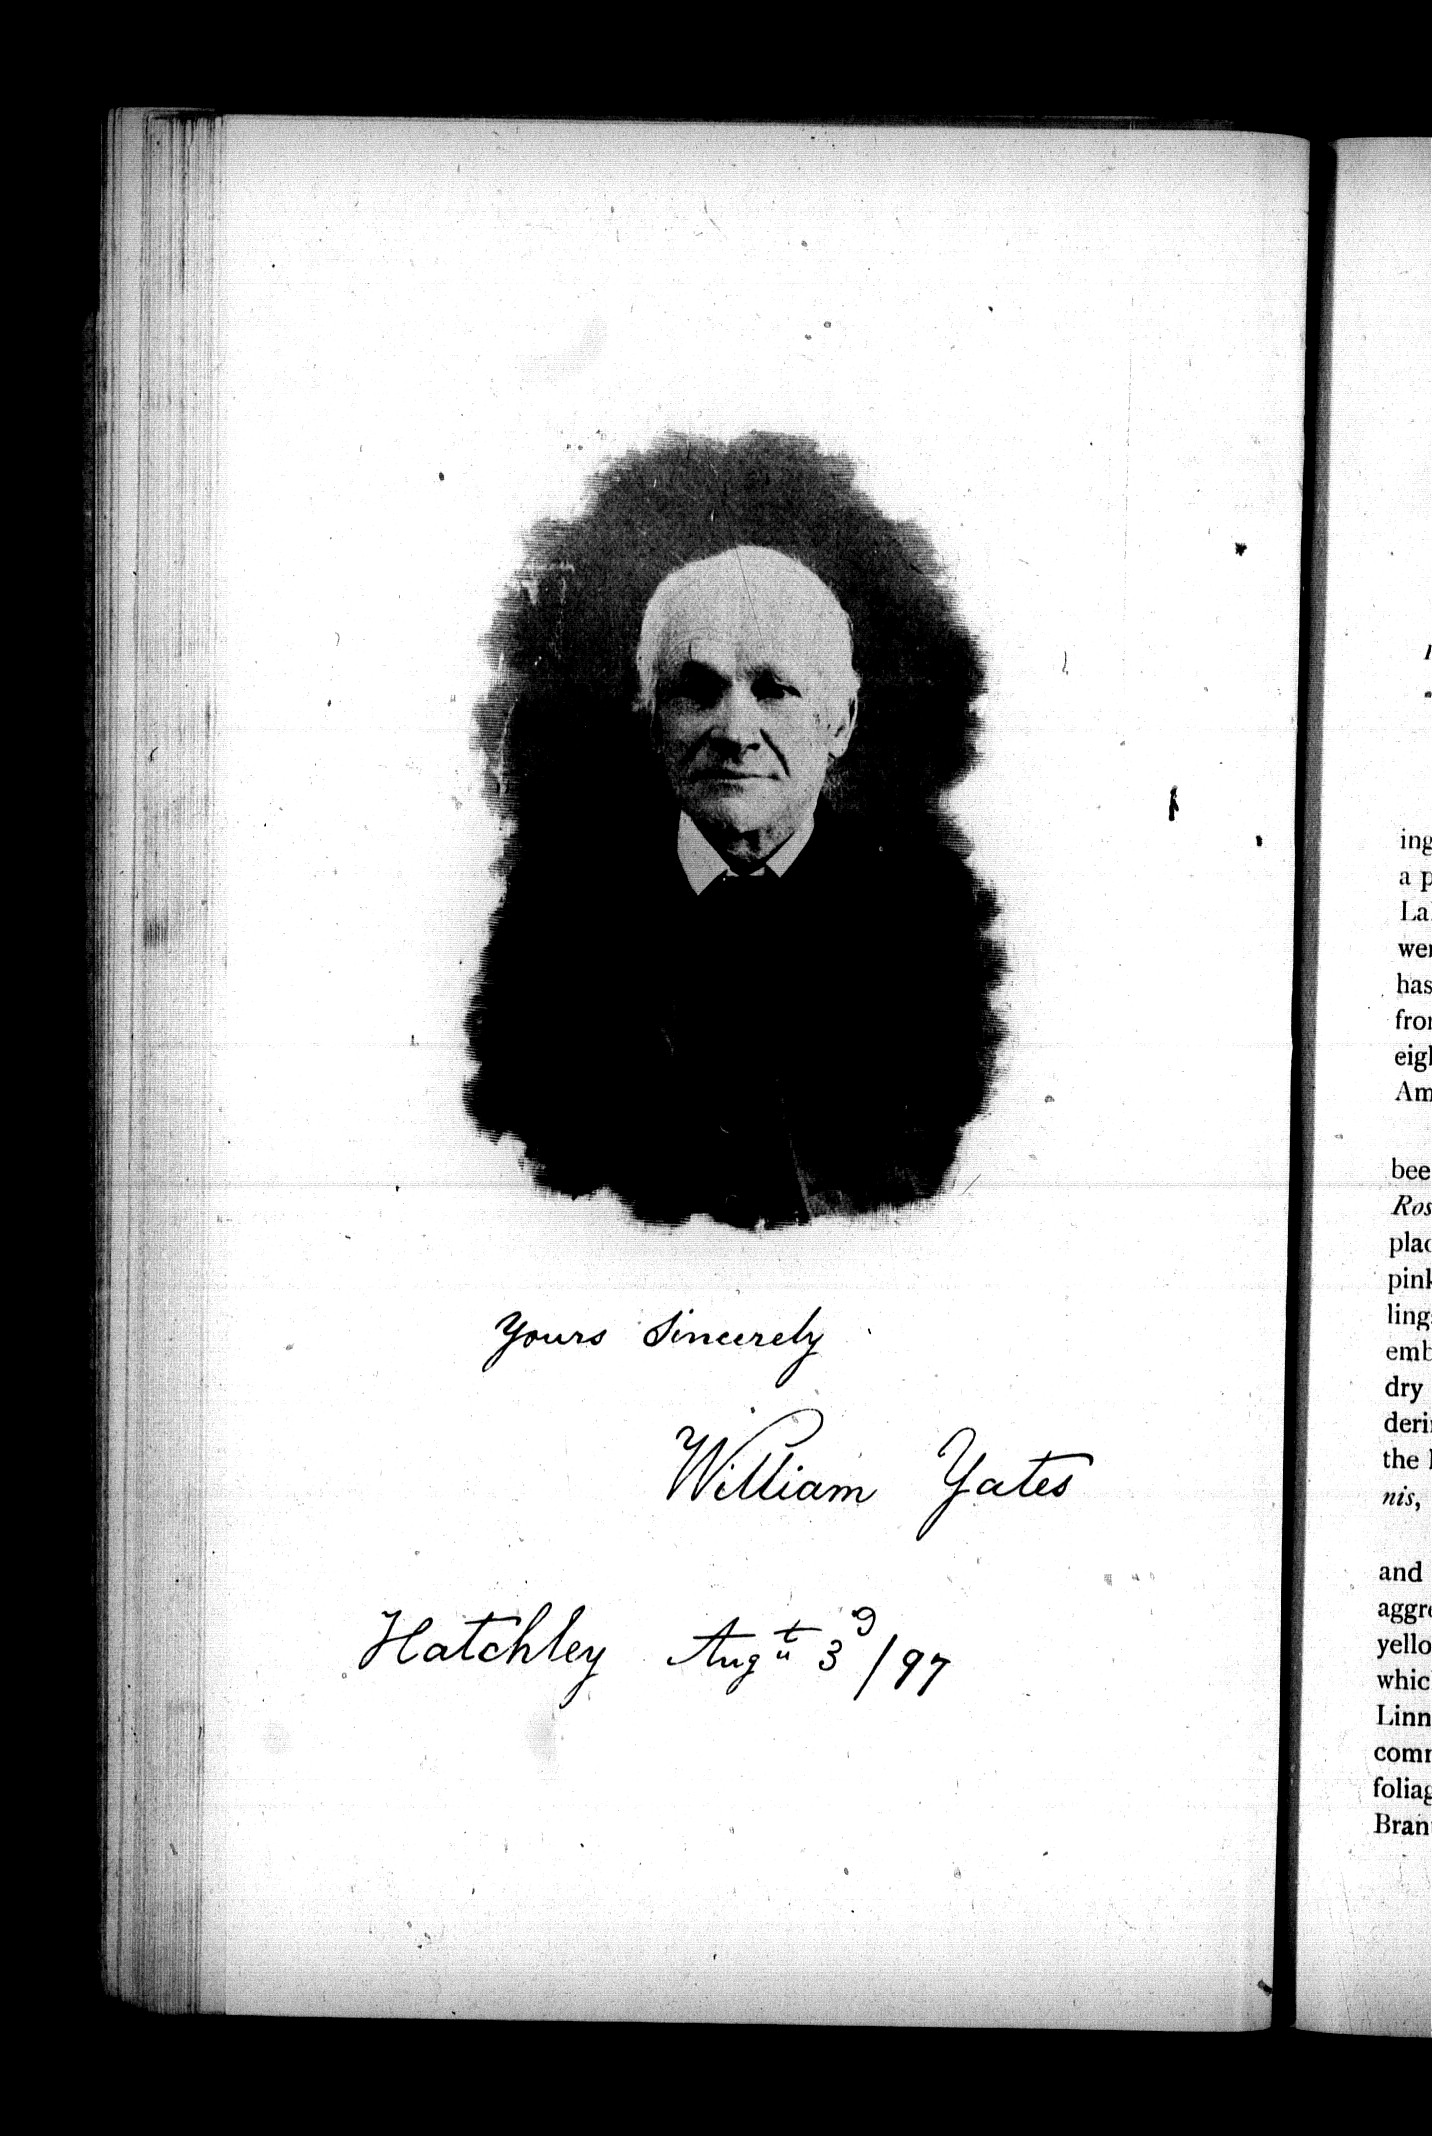 Yours Sincerely
William Yates
Hatchley Augt 3d/97
ing
a p
La
wer
has
from
eigh
Am
bee
Ros
plac
pink
ling
emb
dry
deri
the
nis,
and
aggre
yello
whic
Linn
com
foliag
Bran